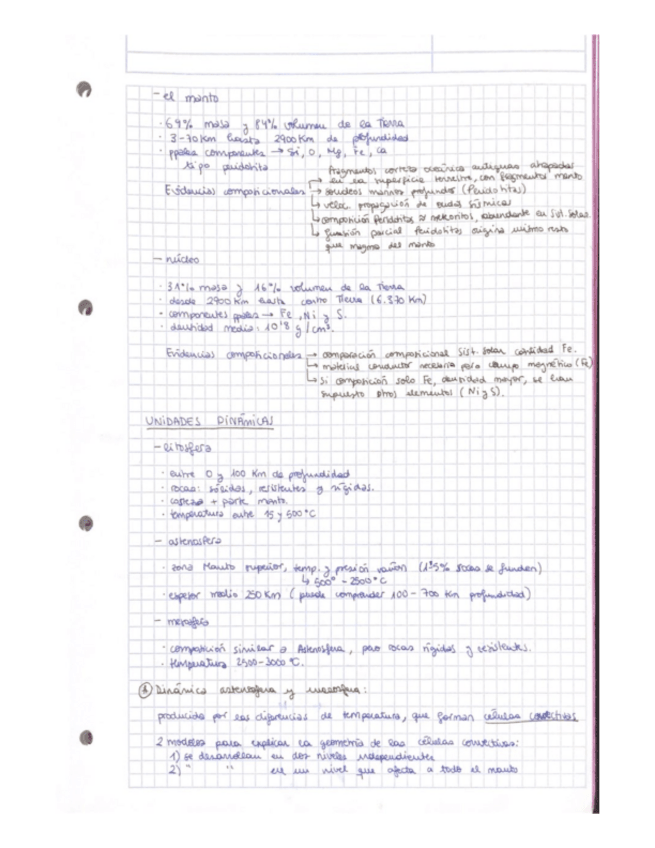 - el manto
· 69% masa y 84% volumen de la Tierra
· 3-70 Km hasta 2900 Km de profundidad
· ppales componentes → Si, O, Mg, Fe, Ca
tipo peridotita
Fragmentos corteza oceánica antiguas atrapadas
Evidencias composicionales → en la superficie terrestre, con fragmentos manto
→ sondeos marinos profundos (Peridotitas)
→ veloc. propagación de ondas sísmicas
→ composición Peridotitas meteoritos, abundante en Sist. Solar.
→ fusión parcial Peridotitas origina mismo
que magma del manto
- núcleo
· 31% masa y 16% volumen de la Tierra
· desde 2900 Km hasta centro Tierra (6.370 Km)
· componentes ppales → Fe, Ni y S.
· densidad media: 10'8 g/cm³.
Evidencias composicionales → comparación composicional Sist. Solar cantidad Fe.
→ material conductor necesario para campo magnético (Fe)
→ si composición solo Fe, densidad mayor, se han
supuesto otros elementos (Ni y S).
UNIDADES DINÁMICAS
- litosfera
· entre 0 y 100 Km de profundidad
· rocas: sólidas, resistentes y rígidas.
· corteza + parte manto
· temperatura entre 15 y 500°C
- astenosfera
· zona Manto superior, temp. y presión varían (1'5% rocas se funden)
↳ 500° - 2500°C
· espesor medio 250 Km (puede comprender 100-700 Km profundidad)
- mesosfera
· composición similar a Astenosfera, pero rocas rígidas y resistentes.
· temperatura 2500-3000 °C.
Dinámica astenosfera y mesosfera:
producida por las diferencias de temperatura, que forman células convectivas
2 modelos para explicar la geometría de las células convectivas:
1) se desarrollan en dos niveles independientes
2) " " en un nivel que afecta a todo el manto